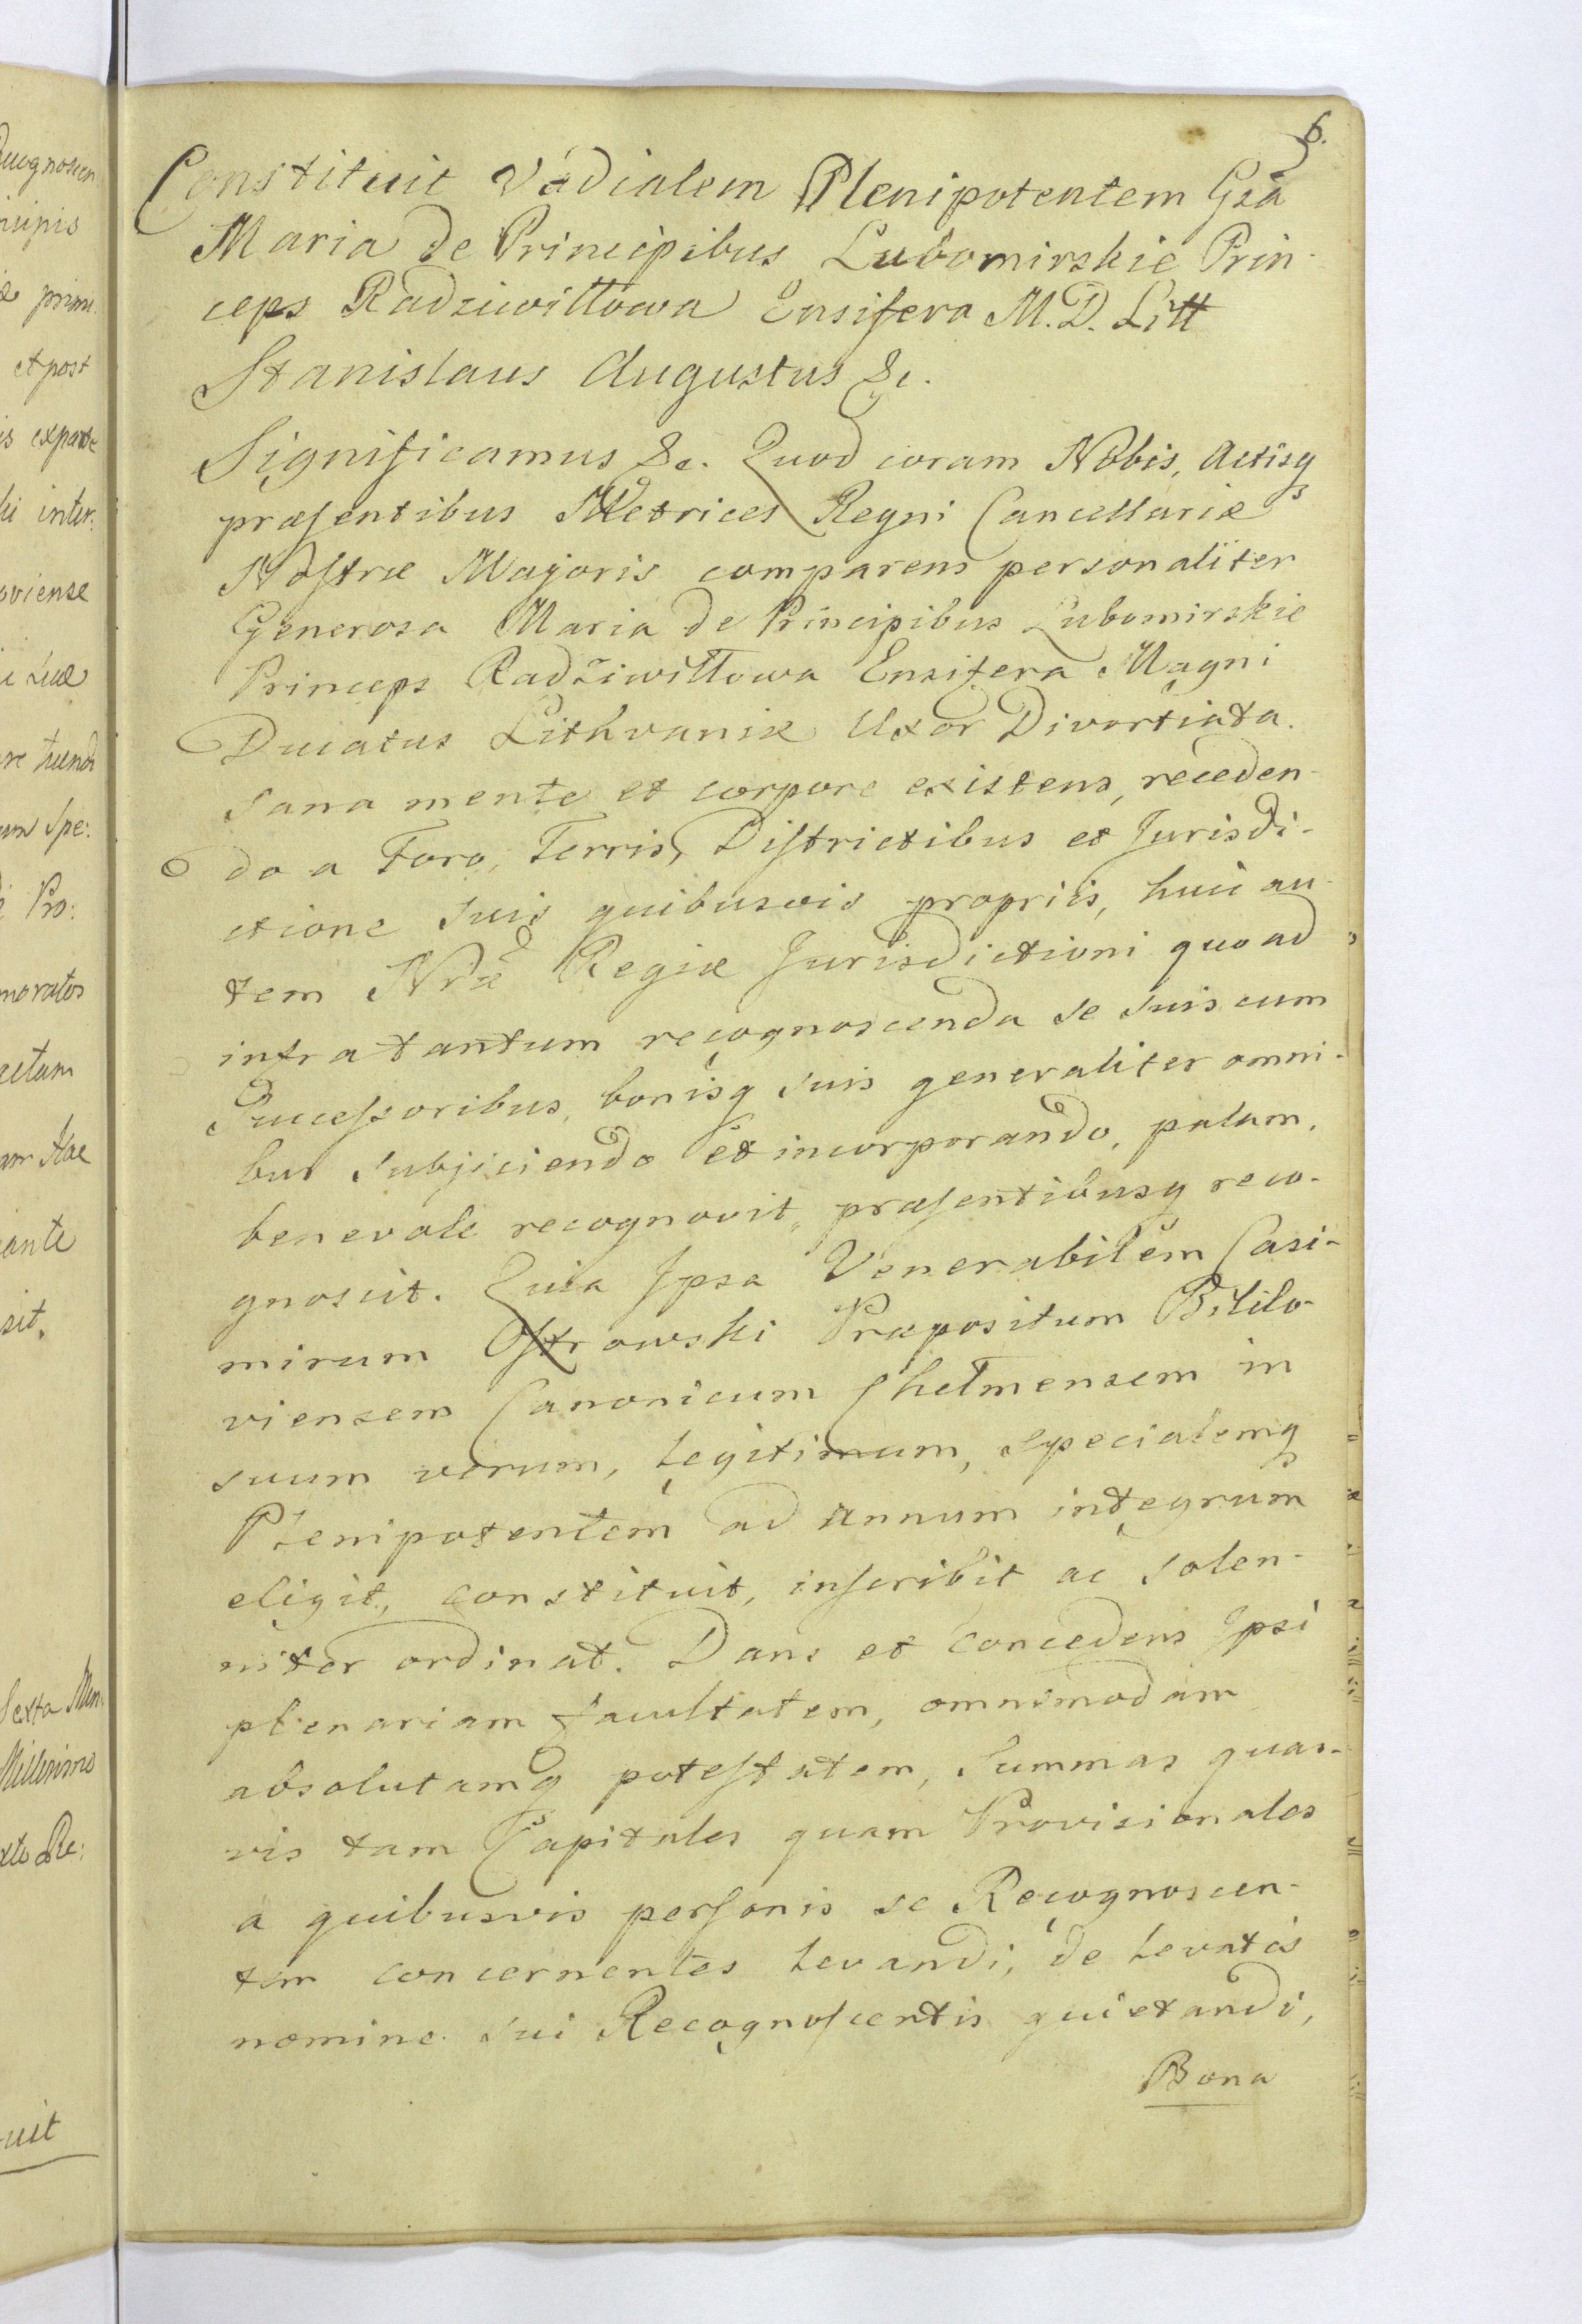 6.
Constituit Vadialem Plenipotentem Gsa
Maria de Principibus Lubomirskie Prin-
ceps Radziwiłłowa Ensifera M.D. Litt
Stanislaus Augustus &c.
Significamus &c. Quod coram Nobis, Actisq
præsentibus Metrices Regni Cancellariæ
Nostræ Majoris comparens personaliter
Generosa Maria de Principibus Lubomirskie
Princeps Radziwiłłowa Ensifera Magni
Ducatus Lithvaniæ Uxor Divortiata.
sana mente et corpore existens, receden-
do a Foro, Terris, Districtibus et Jurisdi-
ctione suis quibusvis propriis, huic au-
tem Nræ Regiæ Jurisdictioni quoad
infra tantum recognoscenda se suis cum
Successoribus, bonisq suis generaliter omni-
bus subjiciendo et incorporando, palam,
benevole recognovit, præsentibusq reco-
gnoscit. Quia Ipsa Venerabilem Casi-
mirum Ostrowski Præpositum Biłilo-
viensem Canonicum Chełmensem in
suum verum, legitimum, specialemq
Plenipotentem ad annum integrum
eligit, constituit, inscribit ac solen-
niter ordinat. Dans et concedens Ipsi
plenariam facultatem, omnimodam
absolutamq potestatem, Summas quas-
vis tam Capitales quam Provisionales
a quibusvis personis se Recognoscen-
tem concernentes levandi, de levatis
nomine sui Recognoscentis quietandi,
Bona